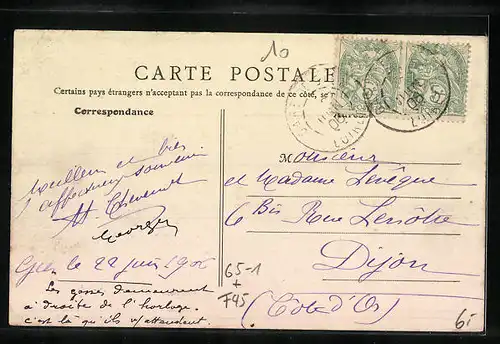 10
CARTE POSTALE
Certains pays étrangers n'acceptant pas la correspondance de ce côté, se
Correspondance
Excellent et bien
affectueux souvenir
Georges
Gien le 22 juin 1906
Les gosses demeurent
à droite de l'horloge
c'est là qu'ils m'attendent.
Monsieur
et Madame Levêque
6 Bis Rue Lenôtre
Dijon
(Côte d'Or)
65-1
+
F45
6:-